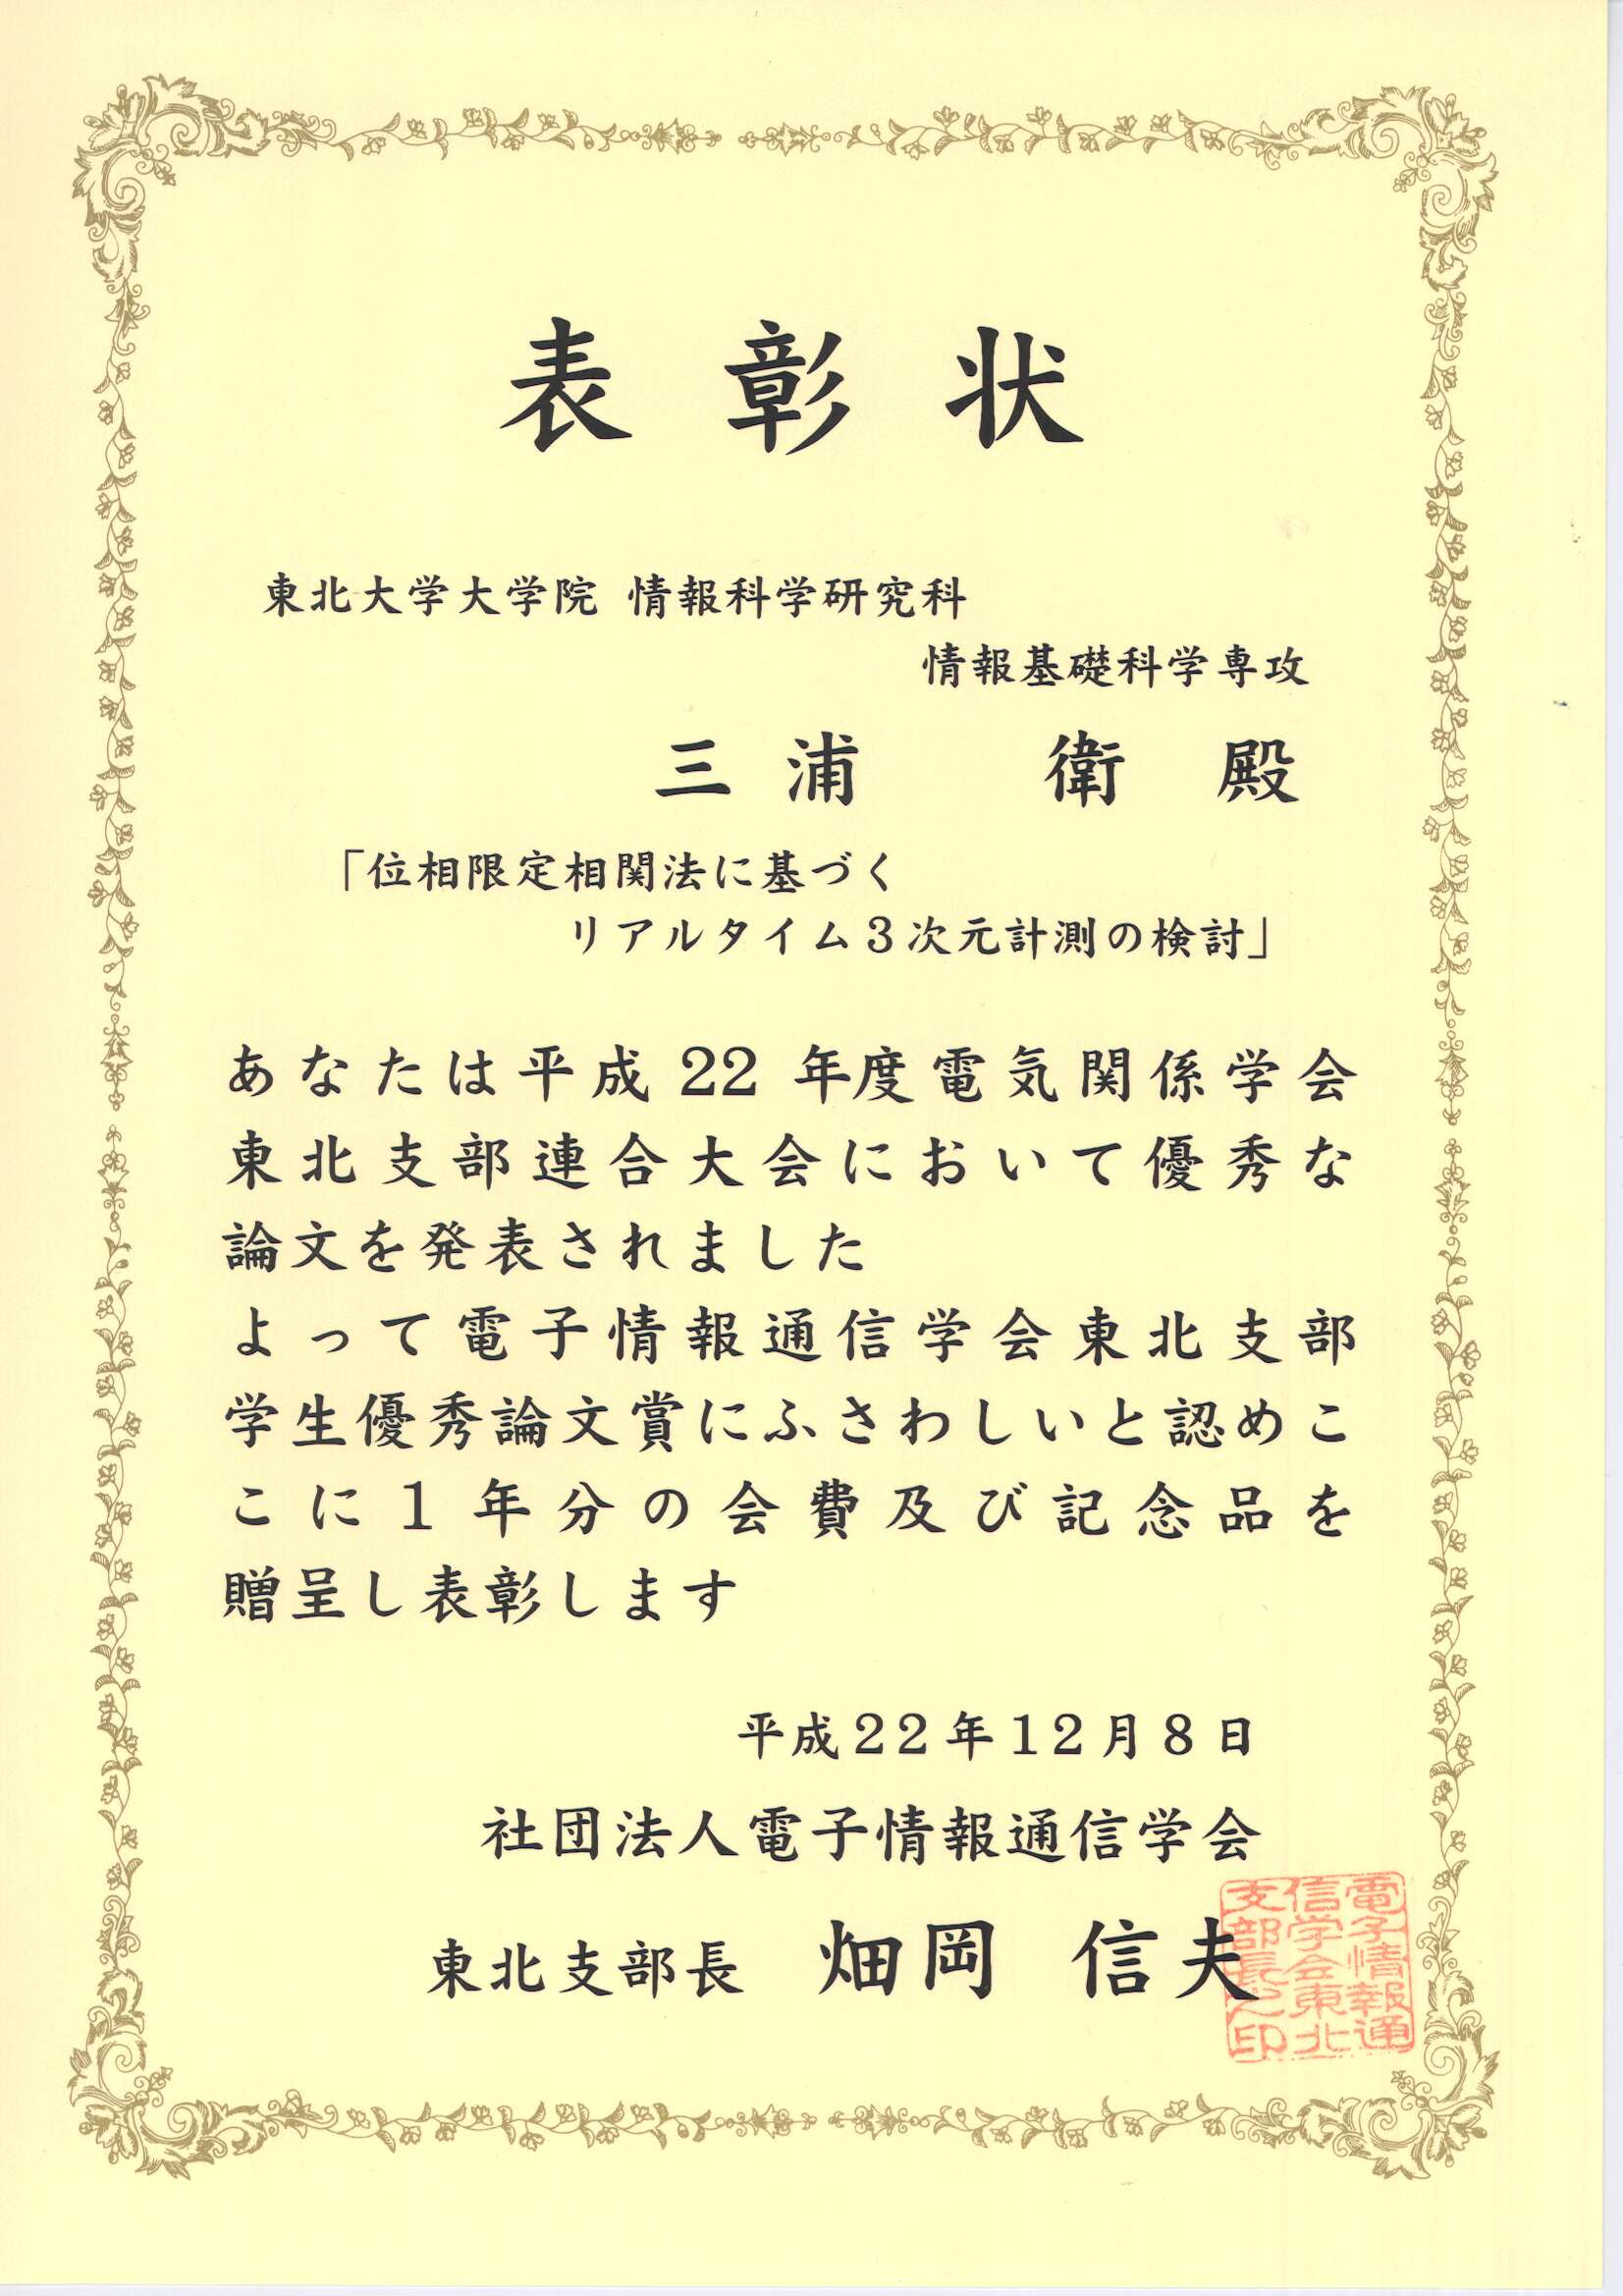 表彰状
東北大学大学院 情報科学研究科
情報基礎科学専攻
三浦 衛 殿
「位相限定相関法に基づく
リアルタイム3次元計測の検討」
あなたは平成22年度電気関係学会
東北支部連合大会において優秀な
論文を発表されました
よって電子情報通信学会東北支部
学生優秀論文賞にふさわしいと認めこ
こに1年分の会費及び記念品を
贈呈し表彰します
平成22年12月8日
社団法人電子情報通信学会
東北支部長 畑岡 信夫
電子情報通
信学会東北
支部長之印